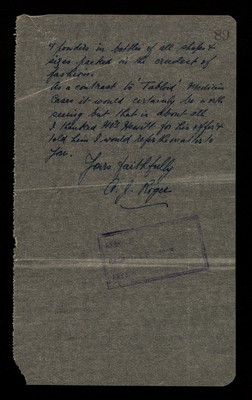 89
& powders in bottles of all shapes &
sizes packed in the crudest of
fashions.
As a contrast to 'Tabloid' Medicine
Cases it would certainly be worth
seeing but that is about all
I thanked Mr Hewitt for his offer &
told him I would refer the matter to
you.
Yours faithfully